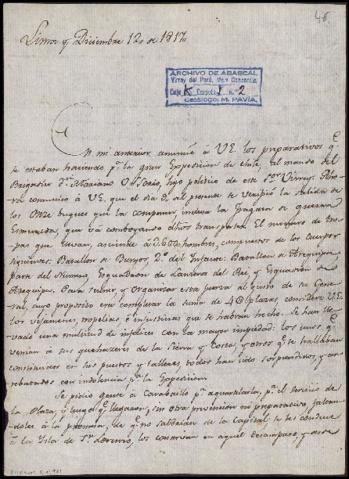 46
Lima y Diciembre 12 de 1817
ARCHIVO DE ABASCAL
Virrey del Perú, Mar. Concordia
Caja Carpeta 1 n.º 2
Catálogo: M. PAVÍA.
En mi anterior anuncié á V.E. los preparativos q.
se estaban haciendo p.ª la gran Expedicion de Chile, al mando del
Brigadier D.n Mariano Ossorio, hijo politico de este S.or Virrey. Aho-
ra comunico á V.E. que el dia 9 del presente se verificó la salida de
los Once buques que la componen, inclusa la Fragata de guerra
Esmeralda, que va comboyando de tropas que llevan, asciende á hombres, compuestos de los Cuerpos
siguientes: Batallon de Burgos, 2.º del Infante, Batallon de Arequipa,
parte del Numero, Esquadron de Lanceros del Rey, y Esquadron de
Arequipa. Para reunir, y organizar esta fuerza al gusto de su Gene-
ral, cuyo proposito era completar la suma de plazas, considere V.E.
los vejamenes, tropelias e injusticias que se habran hecho. Se han lle-
vado una multitud de infelices con la mayor impiedad: los unos q.
venian á sus quehaceres de la Sierra y Costas, y otros q.e se hallaban
en sus puestos y talleres, todos han sido sorprendidos, y arre-
batados con indolencia p.ª la Expedicion.
Se pidió gente á Carabaillo p.ª p.ª el servicio de
la Plaza, y luego q.e llegaron, sin otra prevencion ni preparativo, faltan-
doles á la promesa, de q.e no saldrian de la Capital, se les conduce
á la Isla de S.n Lorenzo, los conservan en aquel desamparo y